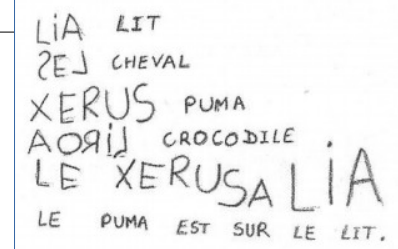 LiA LIT
SEJ CHEVAL
XERUS PUMA
AORiJ CROCODILE
LE XERUSA LiA
LE PUMA EST SUR LE LIT.